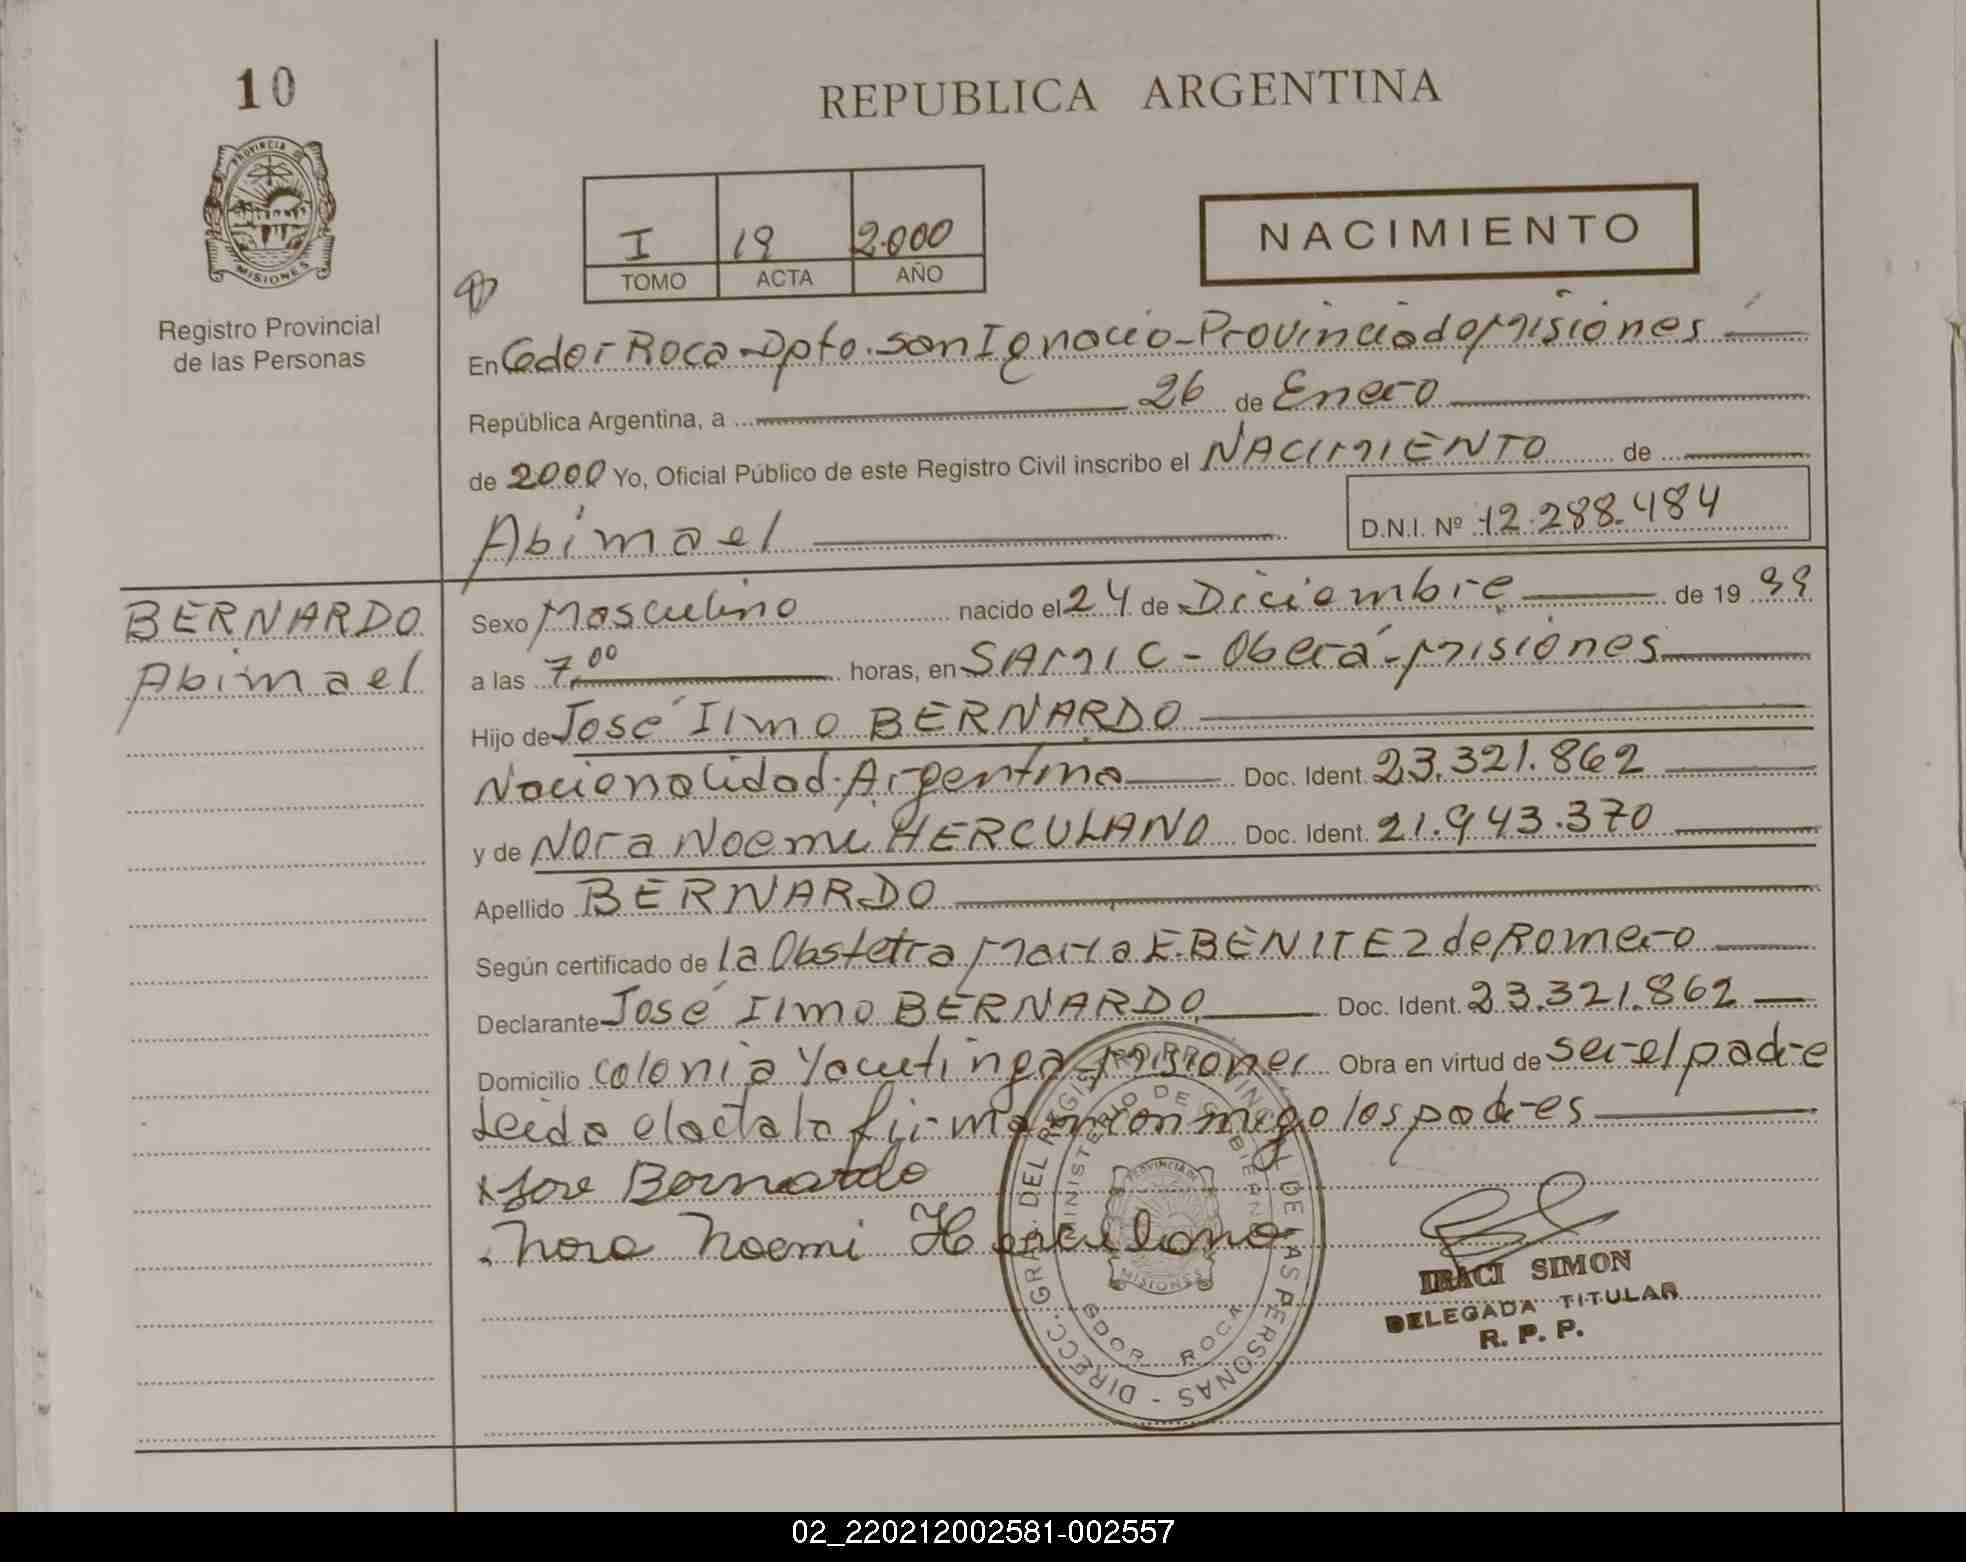 10
REPUBLICA ARGENTINA
PROVINCIA DE
MISIONES
Registro Provincial
de las Personas
I 19 2.000
TOMO ACTA AÑO
NACIMIENTO
En Gdor Roca - Dpto. San Ignacio - Provincia de Misiones
República Argentina, a 26 de Enero
de 2000 Yo, Oficial Público de este Registro Civil inscribo el NACIMIENTO de
Abimael D.N.I. Nº 12.288.484
BERNARDO
Abimael
Sexo Masculino nacido el 24 de Diciembre de 19 99
a las 7,00 horas, en SAMIC - Oberá - Misiones
Hijo de José Ilmo BERNARDO
Nacionalidad Argentina Doc. Ident. 23.321.862
y de Nora Noemi HERCULANO Doc. Ident. 21.943.370
Apellido BERNARDO
Según certificado de la Obstetra Maria E. BENITEZ de Romero
Declarante José Ilmo BERNARDO Doc. Ident. 23.321.862
Domicilio Colonia Yacutinga - Misiones Obra en virtud de ser el padre
Leida el acta la firman conmigo los padres
x Jose Bernardo
Nora Noemi Herculano
DIRECC. GRAL. DEL REGISTRO PROVINCIAL DE LAS PERSONAS
MINISTERIO DE GOBIERNO
PROVINCIA DE
MISIONES
GDOR ROCA
IRACI SIMON
DELEGADA TITULAR
R. P. P.
02_220212002581-002557